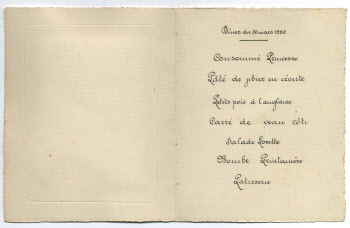 Dîner du 30 mars 1930
Consommé Princesse
Pâté de gibier en croûte
Petits pois à l'anglaise
Carré de veau rôti
Salade Lorette
Bombe Printanière
Patisserie